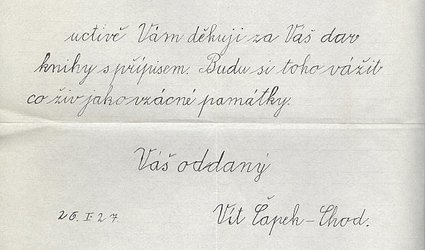 uctivě Vám děkuji za Váš dar
knihy s přípisem. Budu si toho vážit
co živ jako vzácné památky.
Váš oddaný
26. I 27 Vít Čapek-Chod.